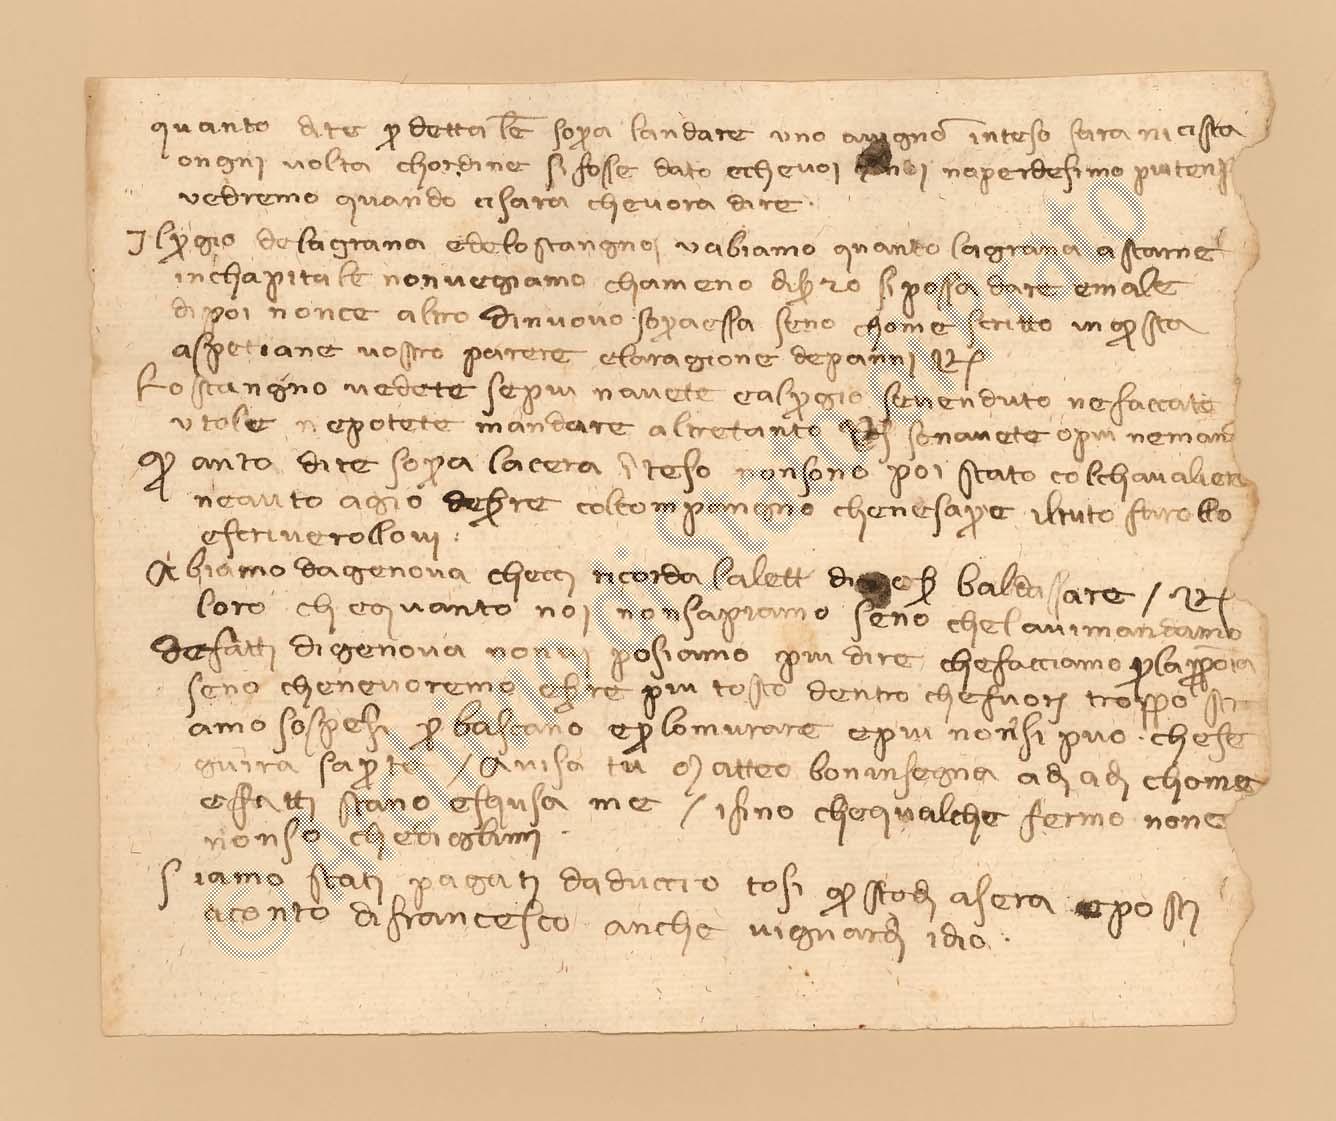 quanto dite p detta le sopra landare uno avignō inteso sara nicista
ongni volta chordine si fosse dato echevoi noi noperdesimo piu tenp
vedremo quando cisara chevora dire
Il pgio delagrana edelo stangno vabiamo quanto lagrana a starne
inchapitale nonvegiamo chameno di 20 si possa dare emale
dipoi nonce altro dinuovo sopraessa seno chome scritto in qsta
aspetiane vostro parere elaragione depanni
Lo stangno vedete sepiu navete ealpgio sevenduto nefacciate
utole nepotete mandare altretanto sonavete opiu neman
q anto dite sopra lacera iteso nonsono poi stato colchavaliere
neauto agio colcompangno chenesapre iltuto farollo
escriverollovi
Abiamo dagenova checci ricorda lalett di baldassare /
loro ch equanto noi nonsapiamo seno chelavimandamo
defatti digenova nonvi posiamo piu dire chefacciamo
seno chenevoremo piu tosto dentro chefuori troppo
amo sospesi p bastano eplomurare epiu nonsi puo chese
guira saprte / Avisa tu Matteo boninsegna adi adi chome
efatti stano eschusa me / isino chequalche fermo none
nonso
Siamo stati pagati daduccio tosi q stodi asera eposti
aconto difrancesco anche viguardi idio
© Archivio di Stato di Prato